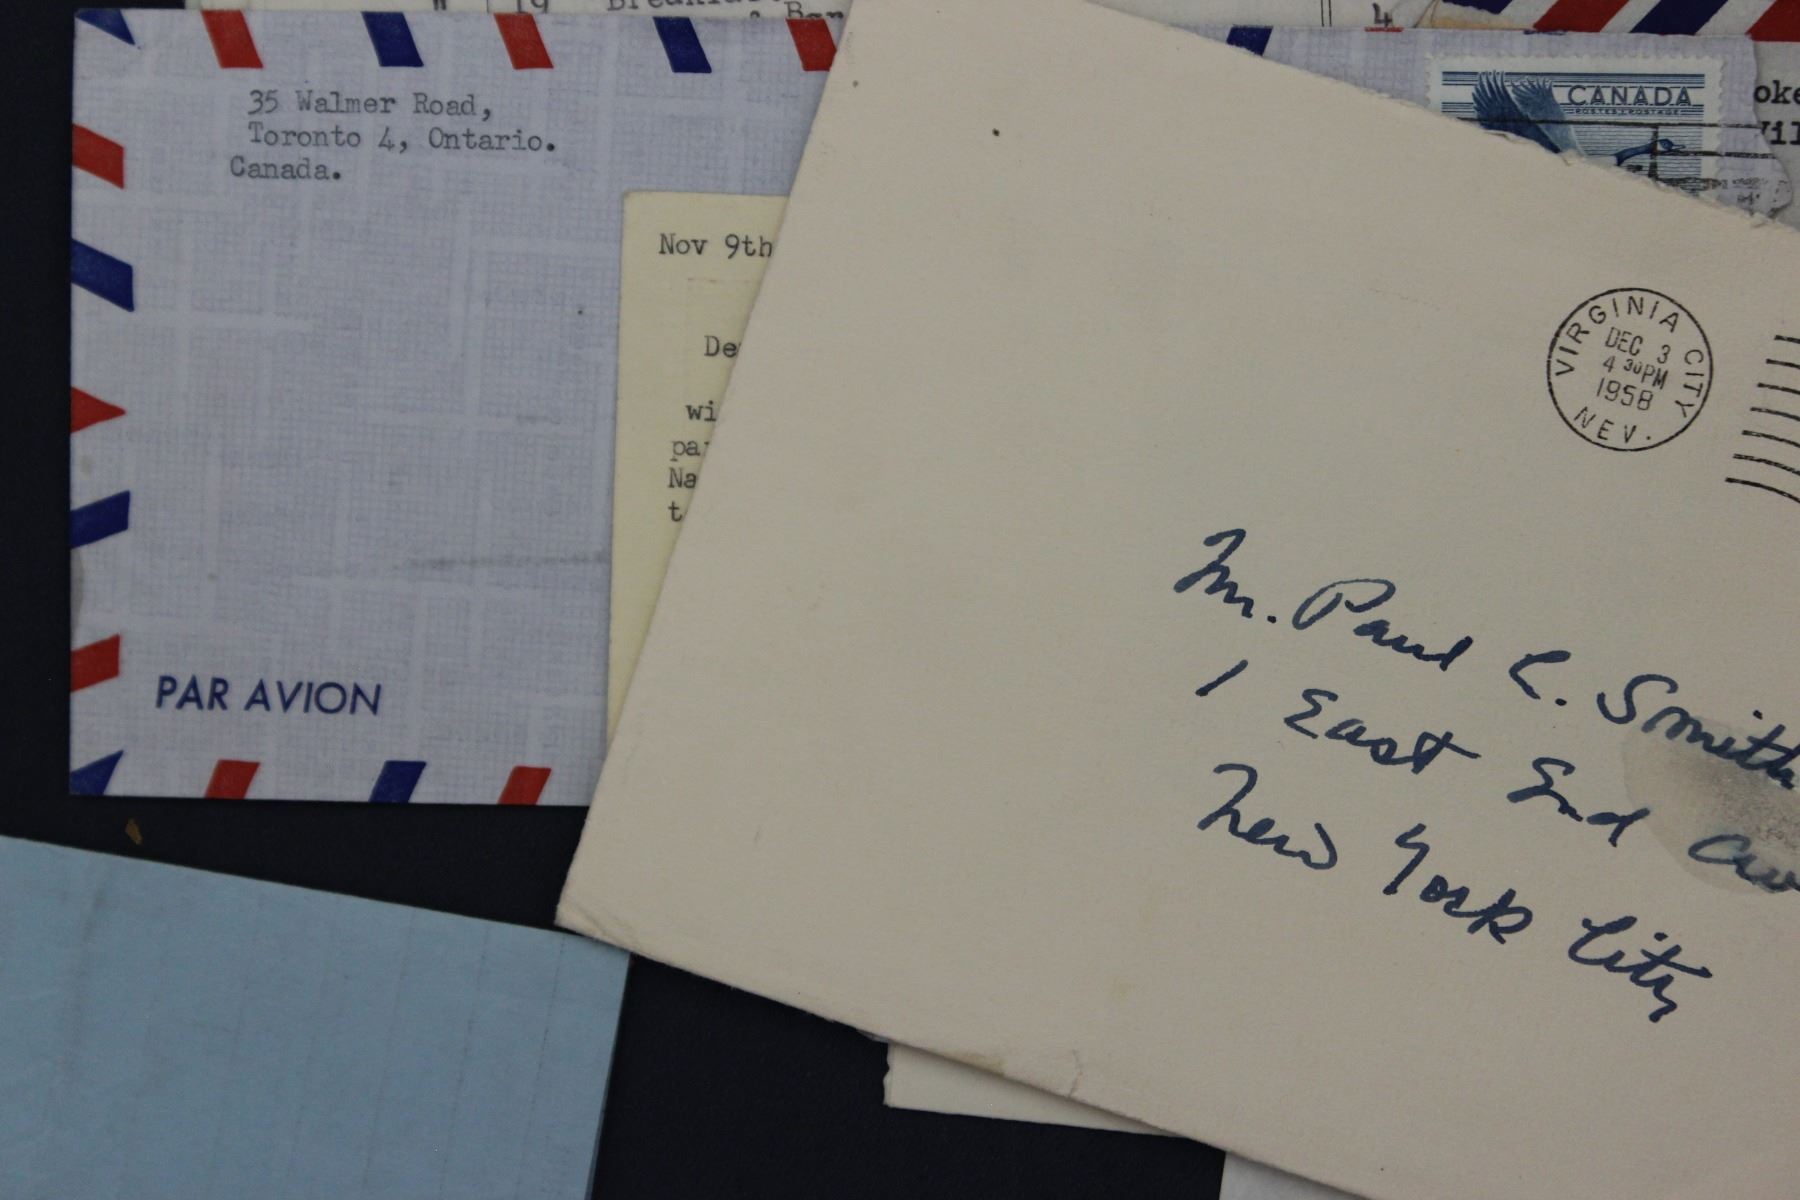 19
4
35 Walmer Road,
Toronto 4, Ontario.
Canada.
PAR AVION
Nov 9th
wi
t
CANADA
POSTES POSTAGE
VIRGINIA CITY
DEC 3
4 30PM
1958
NEV.
Mr. Paul C. Smith
1 East End Ave
New York City